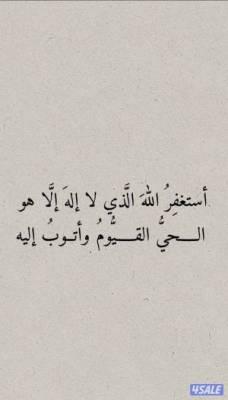 أستغفِرُ اللهَ الَّذي لا إلهَ إلَّا هو
الـــحيُّ القـــيُّومُ وأتــوبُ إليه
4SALE